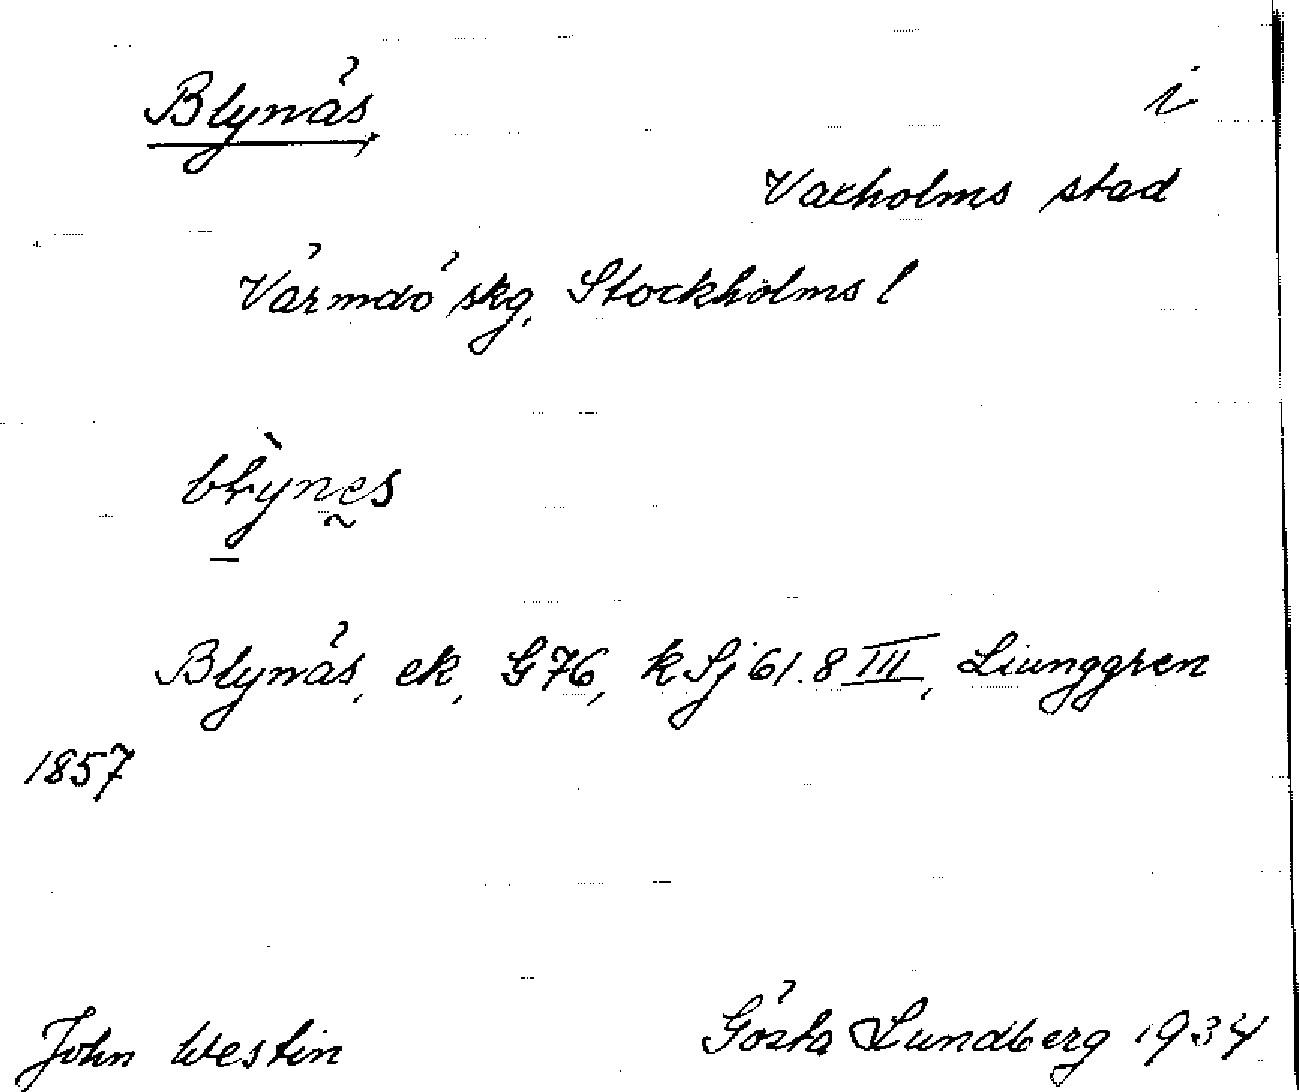 Blynäs, i
Vaxholms stad
Värmdö skg, Stockholms l
Blynäs, ek, G76, k Sj 61.8 III, Liunggren
1857
John Westin Gösta Lundberg 1934